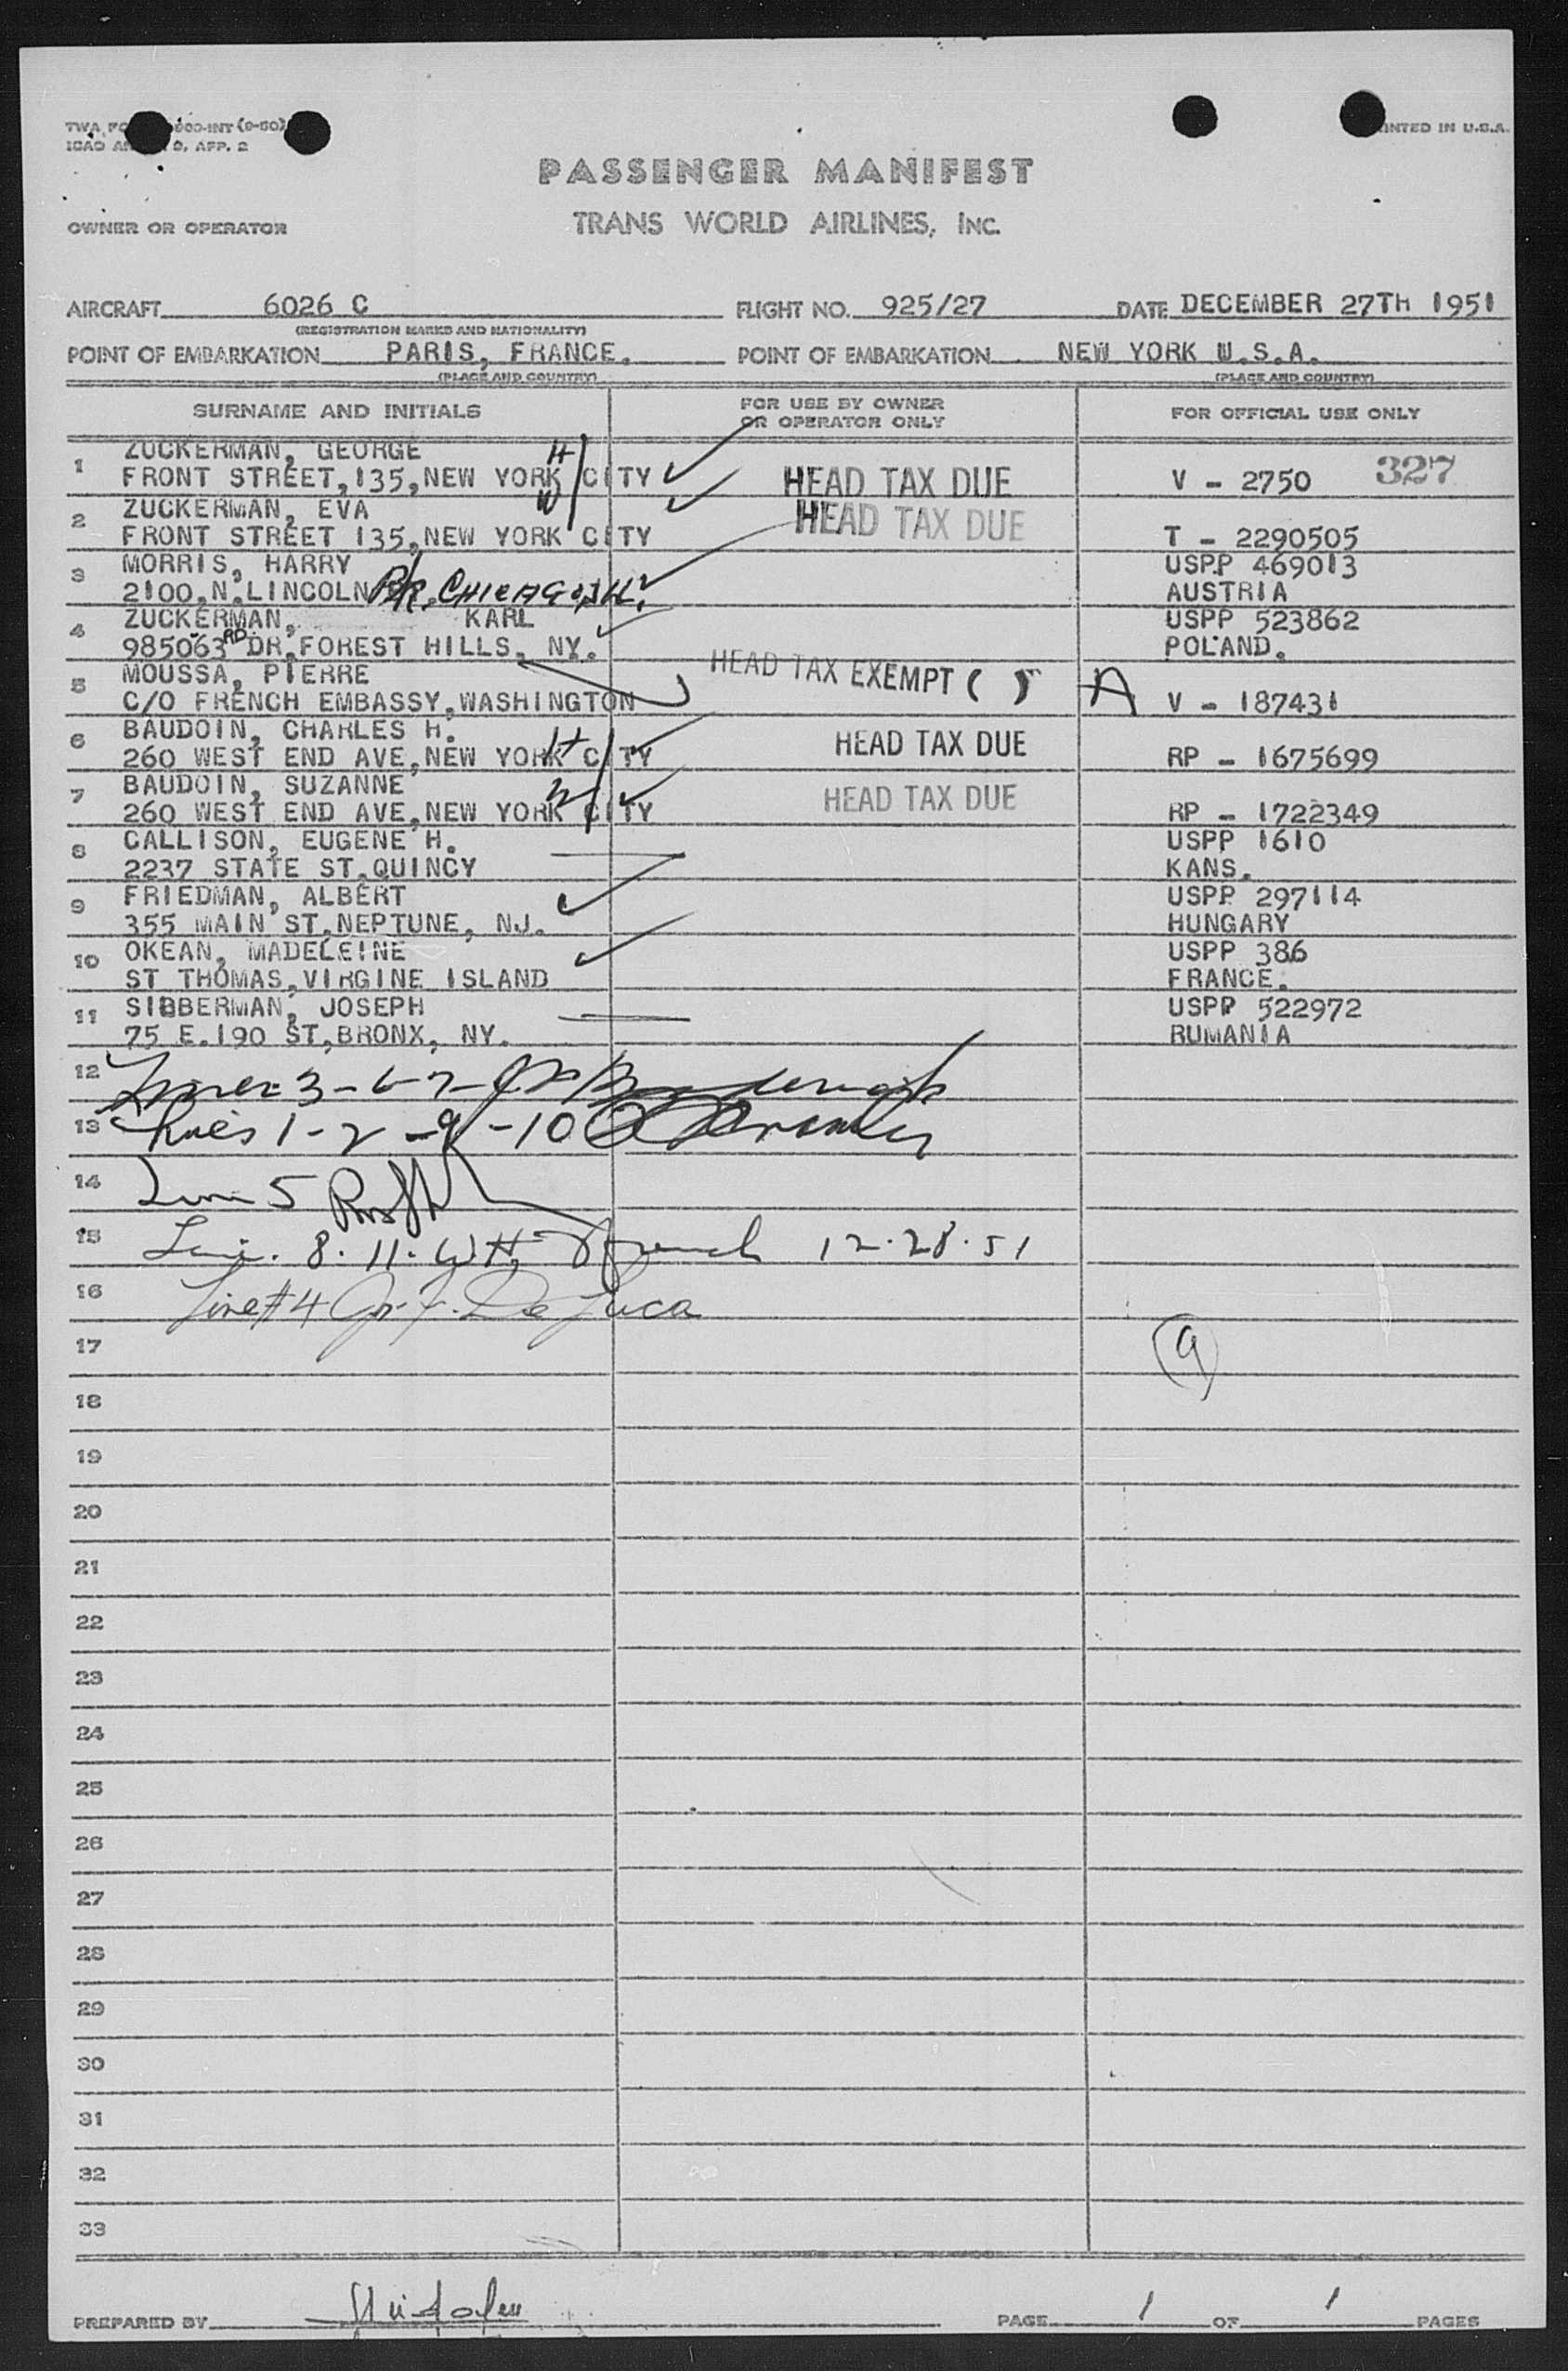 PRINTED IN U.S.A.
ICAO
9, APP. 2
PASSENGER MANIFEST
OWNER OR OPERATOR
TRANS WORLD AIRLINES, INC.
AIRCRAFT 6026 C FLIGHT NO. 925/27 DATE DECEMBER 27TH 1951
(REGISTRATION MARKS AND NATIONALITY)
POINT OF EMBARKATION PARIS, FRANCE. POINT OF EMBARKATION NEW YORK U.S.A.
(PLACE AND COUNTRY) (PLACE AND COUNTRY)
SURNAME AND INITIALS FOR USE BY OWNER OR OPERATOR ONLY FOR OFFICIAL USE ONLY
1 ZUCKERMAN, GEORGE H
FRONT STREET, 135, NEW YORK CITY HEAD TAX DUE V - 2750 327
2 ZUCKERMAN, EVA W HEAD TAX DUE
FRONT STREET 135, NEW YORK CITY T - 2290505
3 MORRIS, HARRY USPP 469013
2100.N.LINCOLN PK. CHICAGO, ILL. AUSTRIA
4 ZUCKERMAN, KARL USPP 523862
985063RD DR, FOREST HILLS, NY. POLAND.
5 MOUSSA, PIERRE HEAD TAX EXEMPT ( )
C/O FRENCH EMBASSY, WASHINGTON A V - 187431
6 BAUDOIN, CHARLES H. H
260 WEST END AVE, NEW YORK CITY HEAD TAX DUE RP - 1675699
7 BAUDOIN, SUZANNE W
260 WEST END AVE, NEW YORK CITY HEAD TAX DUE RP - 1722349
8 CALLISON, EUGENE H. USPP 1610
2237 STATE ST. QUINCY KANS.
9 FRIEDMAN, ALBERT USPP 297114
355 MAIN ST. NEPTUNE, NJ. HUNGARY
10 OKEAN, MADELEINE USPP 386
ST THOMAS, VIRGINE ISLAND FRANCE.
11 SIBBERMAN, JOSEPH USPP 522972
75 E. 190 ST, BRONX, NY. RUMANIA
12 Lines 3-6-7-
13 Lines 1-2-9-10
14 Line 5
15 Line. 8. 11. 12.28.51
16 Line #4 De Luca
17 9
18
19
20
21
22
23
24
25
26
27
28
29
30
31
32
33
PREPARED BY PAGE 1 OF 1 PAGES